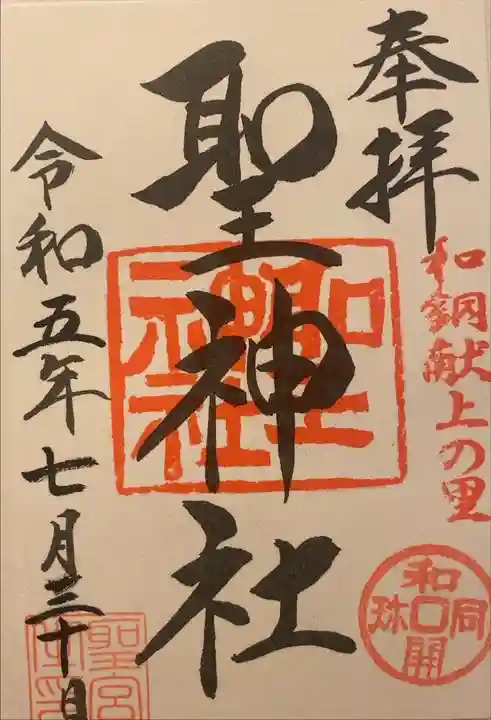 奉拝
和銅献上の里
和同開珎
聖神社
聖神社
令和五年七月三十日
聖宮